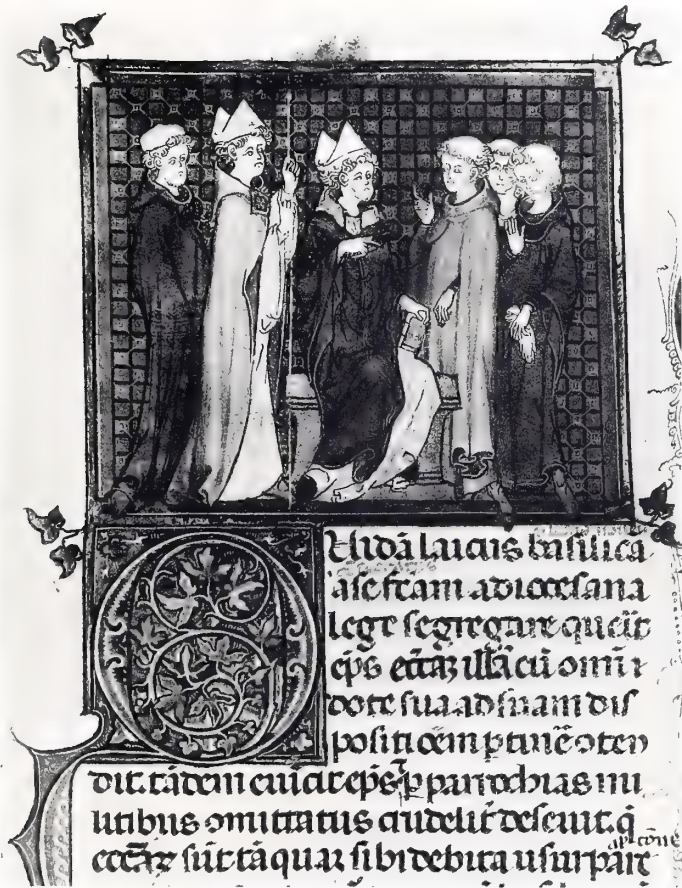 Quidā laicus basilicā
a se fcām a diocesana
lege segregare querit
ep̄s ecc̄az illā cū omni
dote sua ad suam dis
positōem ptinē osten
dit. tādem euicit ep̄s p parrochias mi
litibus comitatus crudelit̄ deseuit. q̄
ecc̄az sūt tā quaz sibi debita usurpare